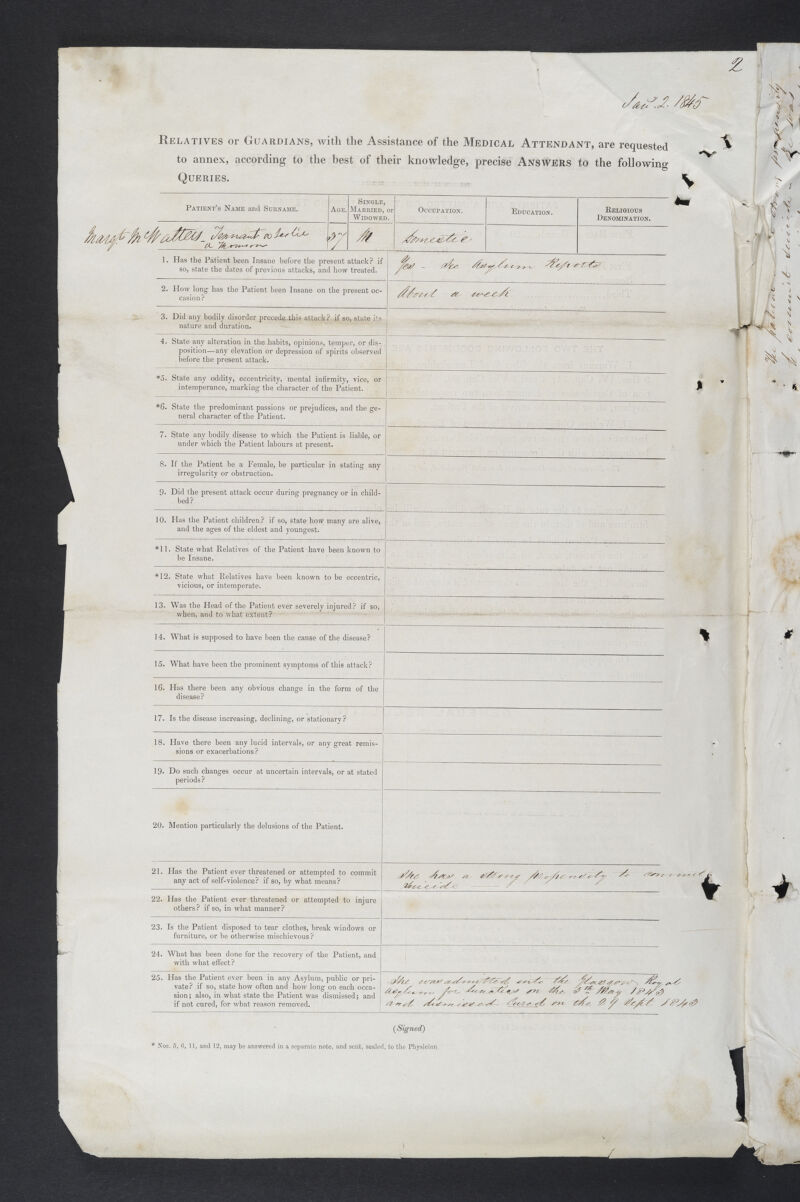 2
Jany. 2. 1845
RELATIVES or GUARDIANS, with the Assistance of the MEDICAL ATTENDANT, are requested
to annex, according to the best of their knowledge, precise ANSWERS to the following
QUERIES.
PATIENT'S NAME and SURNAME. AGE. SINGLE, MARRIED, or WIDOWED. OCCUPATION. EDUCATION. RELIGIOUS DENOMINATION.
Margt. McWatters Tennant or Leslie M Domestic
or Thomson
1. Has the Patient been Insane before the present attack? if Yes - See Asylum Reports
so, state the dates of previous attacks, and how treated.
2. How long has the Patient been Insane on the present oc- About a week
casion?
3. Did any bodily disorder precede this attack? if so, state its
nature and duration.
4. State any alteration in the habits, opinions, temper, or dis-
position—any elevation or depression of spirits observed
before the present attack.
*5. State any oddity, eccentricity, mental infirmity, vice, or
intemperance, marking the character of the Patient.
*6. State the predominant passions or prejudices, and the ge-
neral character of the Patient.
7. State any bodily disease to which the Patient is liable, or
under which the Patient labours at present.
8. If the Patient be a Female, be particular in stating any
irregularity or obstruction.
9. Did the present attack occur during pregnancy or in child-
bed?
10. Has the Patient children? if so, state how many are alive,
and the ages of the eldest and youngest.
*11. State what Relatives of the Patient have been known to
be Insane.
*12. State what Relatives have been known to be eccentric,
vicious, or intemperate.
13. Was the Head of the Patient ever severely injured? if so,
when, and to what extent?
14. What is supposed to have been the cause of the disease?
15. What have been the prominent symptoms of this attack?
16. Has there been any obvious change in the form of the
disease?
17. Is the disease increasing, declining, or stationary?
18. Have there been any lucid intervals, or any great remis-
sions or exacerbations?
19. Do such changes occur at uncertain intervals, or at stated
periods?
20. Mention particularly the delusions of the Patient.
21. Has the Patient ever threatened or attempted to commit She has a strong propensity to commit
any act of self-violence? if so, by what means? suicide
22. Has the Patient ever threatened or attempted to injure
others? if so, in what manner?
23. Is the Patient disposed to tear clothes, break windows or
furniture, or be otherwise mischievous?
24. What has been done for the recovery of the Patient, and
with what effect?
25. Has the Patient ever been in any Asylum, public or pri- She was admitted into the Glasgow Royal
vate? if so, state how often and how long on each occa- Asylum for Lunatics on the 5th May 1843
sion; also, in what state the Patient was dismissed; and and dismissed Cured on the 29 Sept 1843
if not cured, for what reason removed.
(Signed)
* Nos. 5, 6, 11, and 12, may be answered in a separate note, and sent, sealed, to the Physician